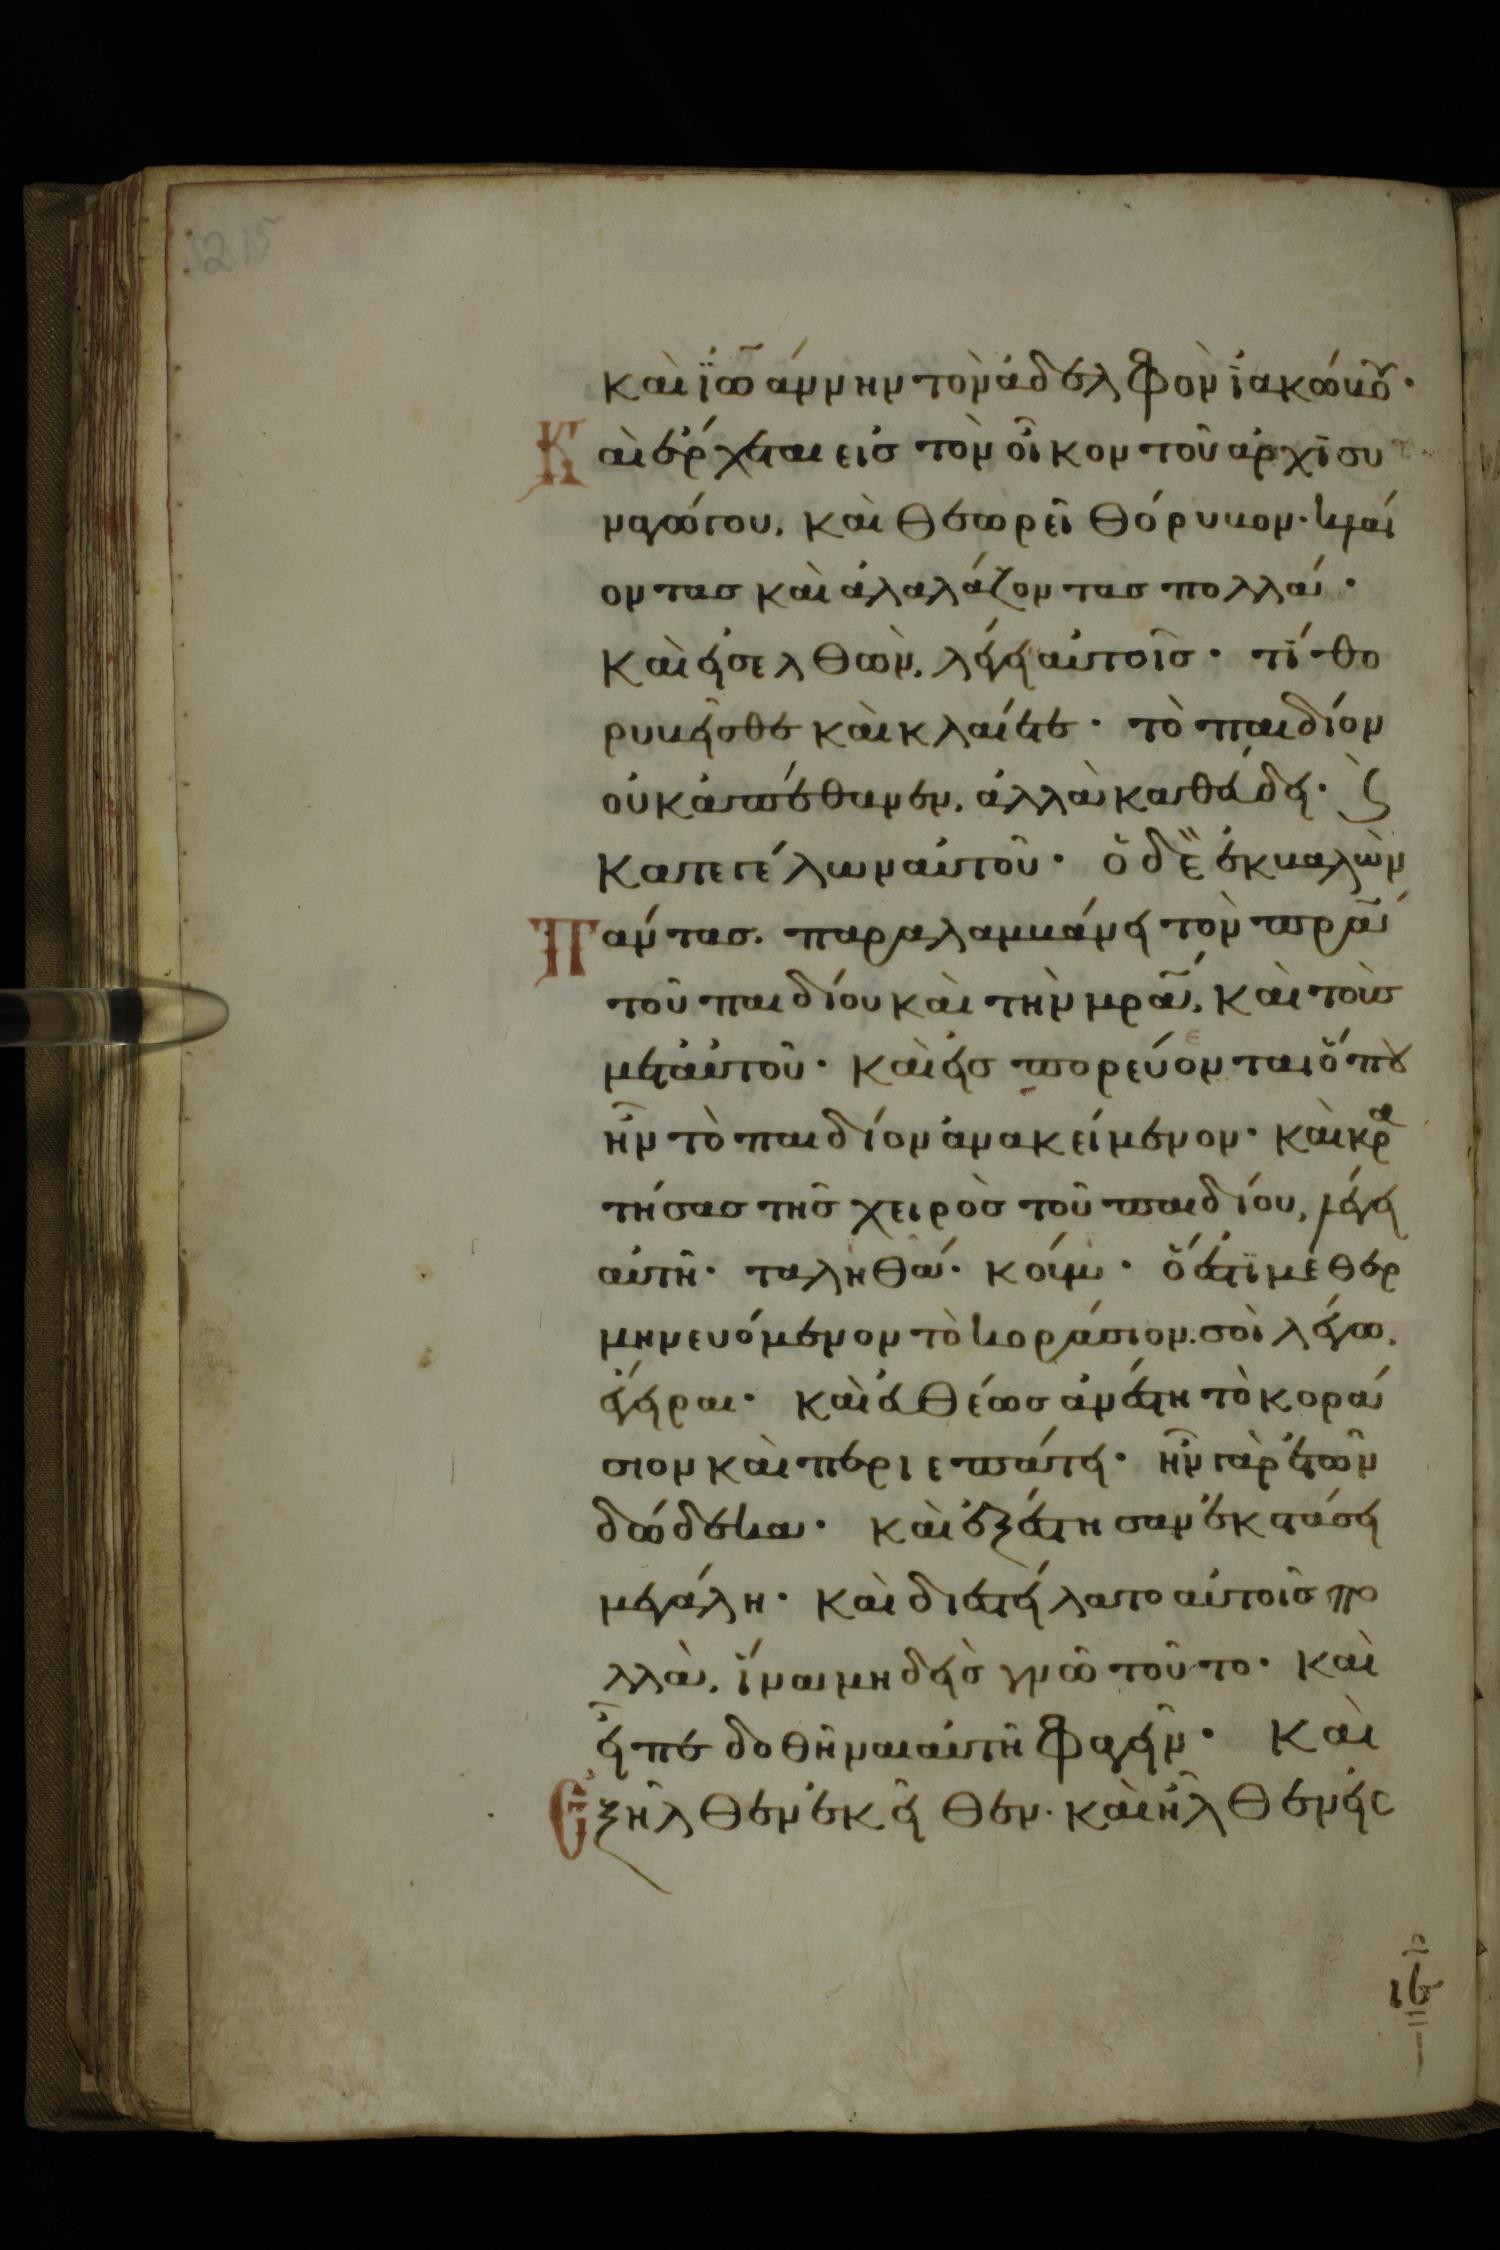 και ϊωάννην τὸν ἀδελφὸν ϊακώβου·
Καὶ ἔρχεται εἰσ τὸν οἶκον τοῦ ἀρχϊσυ
ναγώγου, καὶ θεωρεῖ θόρυβον· κλαί
οντασ καὶ ἀλαλάζοντασ πολλά·
καὶ εἰσελθὼν, λέγει αὐτοῖσ· τί θο
ρυβεῖσθε καὶ κλαίετε· τὸ παιδίον
οὐκ ἀπέθανεν, ἀλλὰ καθεύδει· Ϛ
κατεγέλων αὐτοῦ· ὁ δὲ ἐκβαλὼν
Πάντασ. παραλαμβάνει τὸν πρᾱ
τοῦ παιδίου καὶ τὴν μρᾱ, καὶ τοὺσ
μετ αὐτοῦ· καὶ εἰσπορεύονται ὅπου
ἦν τὸ παιδίον ἀνακείμενον· καὶ κρα
τήσασ τῆσ χειρὸσ τοῦ παιδίου, λέγει
αὐτῆ· ταληθά· κούμι· ὅ ἐστϊ μεθερ
μηνευόμενον τὸ κοράσιον. σοὶ λέγω,
ἔγειραι· καὶ εὐθέωσ ἀνέστη τὸ κορά
σιον καὶ περιεπάτει· ἦν γὰρ ἐτῶν
δώδεκα· καὶ ἐξέστησαν ἐκστάσει
μεγάλη· καὶ διεστείλατο αὐτοῖσ πο
λλὰ, ἵνα μηδεὶσ γνῶ τοῦτο· καὶ
εἶπε δοθῆναι αὐτῆ φαγεῖν· Καὶ
Ἐξῆλθεν ἐκεῖθεν· καὶ ἦλθεν εἰσ